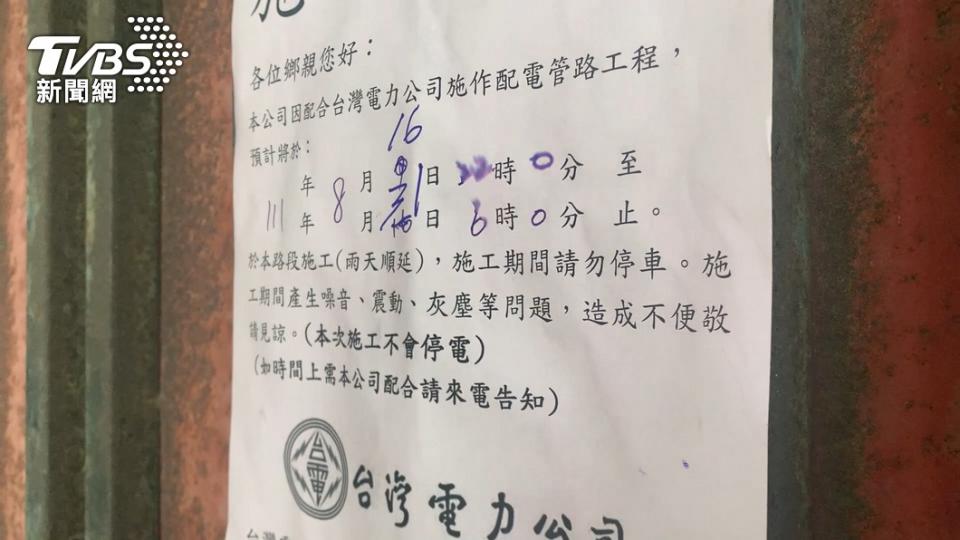 TVBS
新聞網
施
各位鄉親您好：
本公司因配合台灣電力公司施作配電管路工程，
預計將於：
16
年 8 月 日 22 時 0 分 至
111 年 8 月 日 6 時 0 分 止。
於本路段施工(雨天順延)，施工期間請勿停車。施
工期間產生噪音、震動、灰塵等問題，造成不便敬
請見諒。(本次施工不會停電)
(如時間上需本公司配合請來電告知)
台電
台灣電力公司